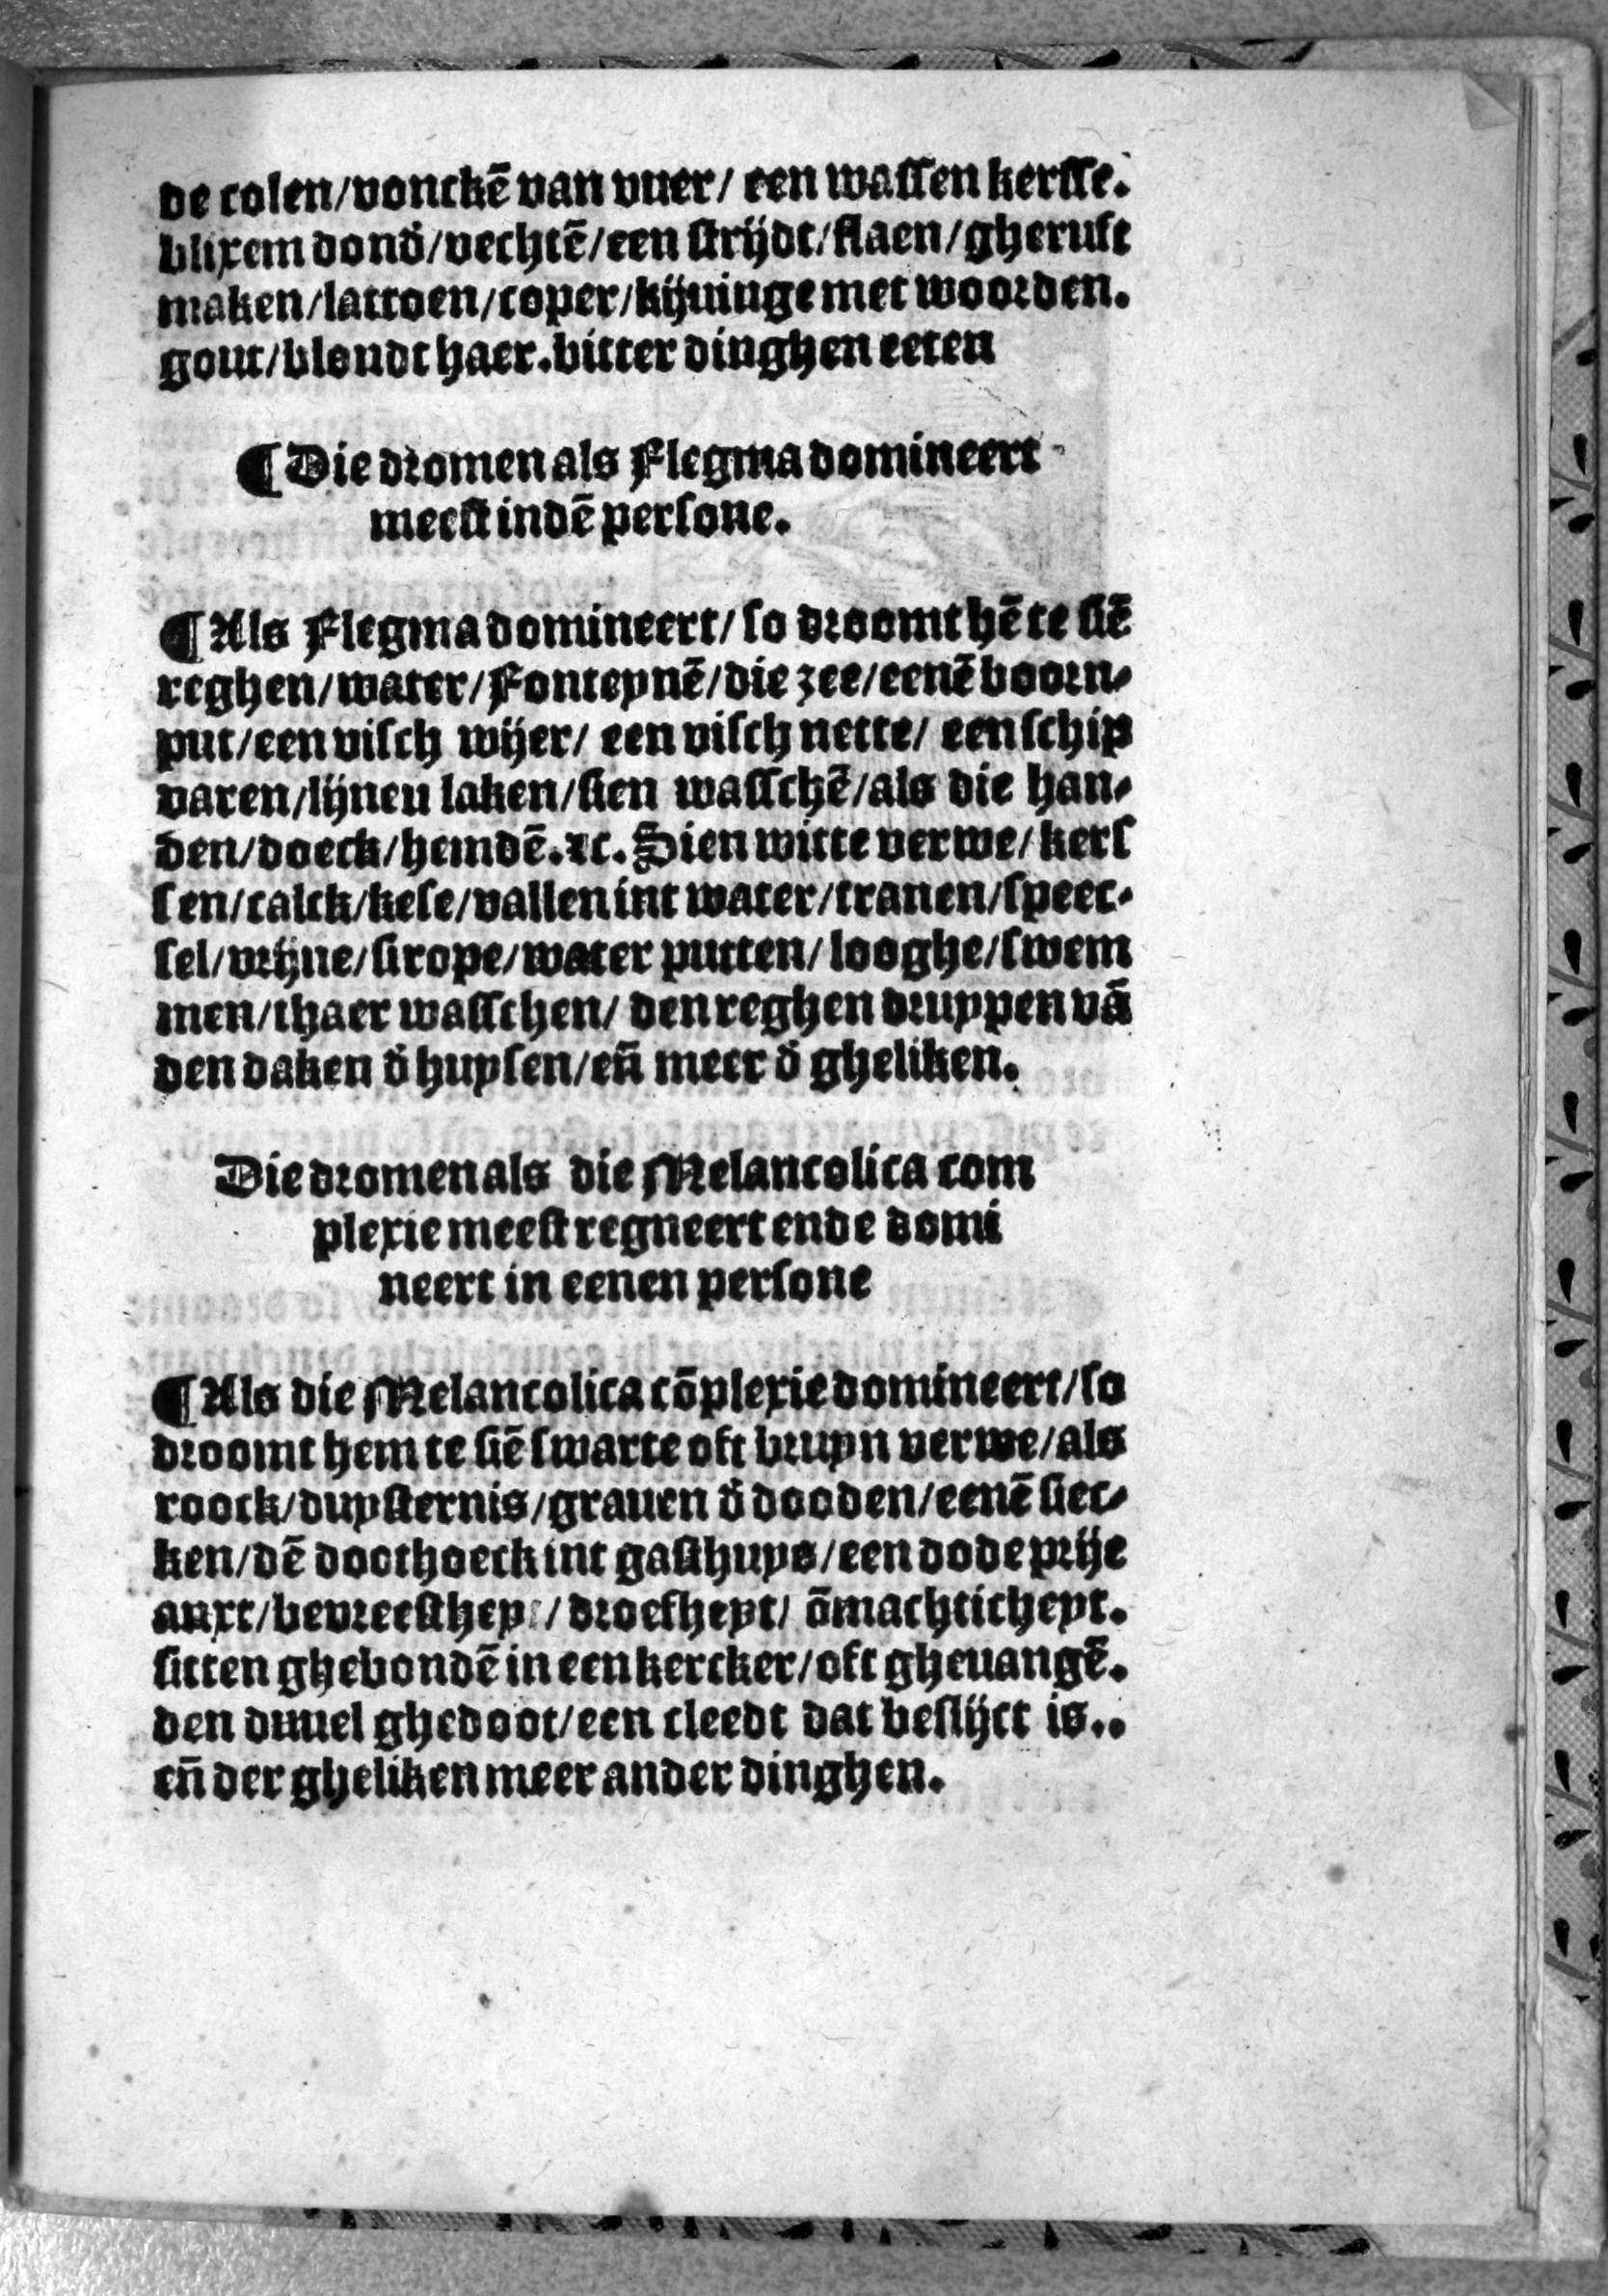 de colen/vonckē van vuer/ een wassen kersse.
blixem donđ/vechtē/een strijdt/slaen/gheruft
maken/lattoen/coper/kijuinge met woorden.
gout/blondt haer.bitter dinghen eeten
¶Die dromen als Flegma domineert
meest indē persone.
¶Als Flegma domineert/ so droomt hē te siē
reghen/water/Fonteynē/die zee/eenē boorn-
put/een visch wijer/ een visch nette/ een schip
varen/lijnen laken/sien wasschē/als die han-
den/doeck/hemdē.⁊c. Sien witte verwe/ kers
sen/calck/kese/vallen int water/tranen/speec-
sel/vrijne/sirope/water putten/ looghe/swem
men/thaer wasschen/ den reghen druppen vā
den daken đ huysen/eñ meer đ gheliken.
Die dromen als die Melancolica com
plexie meest regneert ende domi
neert in eenen persone
¶Als die Melancolica cōplexie domineert/so
droomt hem te siē swarte oft bruyn verwe/als
roock/duysternis/grauen đ dooden/eenē siec-
ken/dē doothoeck int gasthuys/een dode prije
anxt/bevreesthey/ droefheyt/ ōmachticheyt.
sitten ghebondē in een kercker/oft gheuangē.
den duuel ghedoot/een cleedt dat beslijct is..
eñ der gheliken meer ander dinghen.